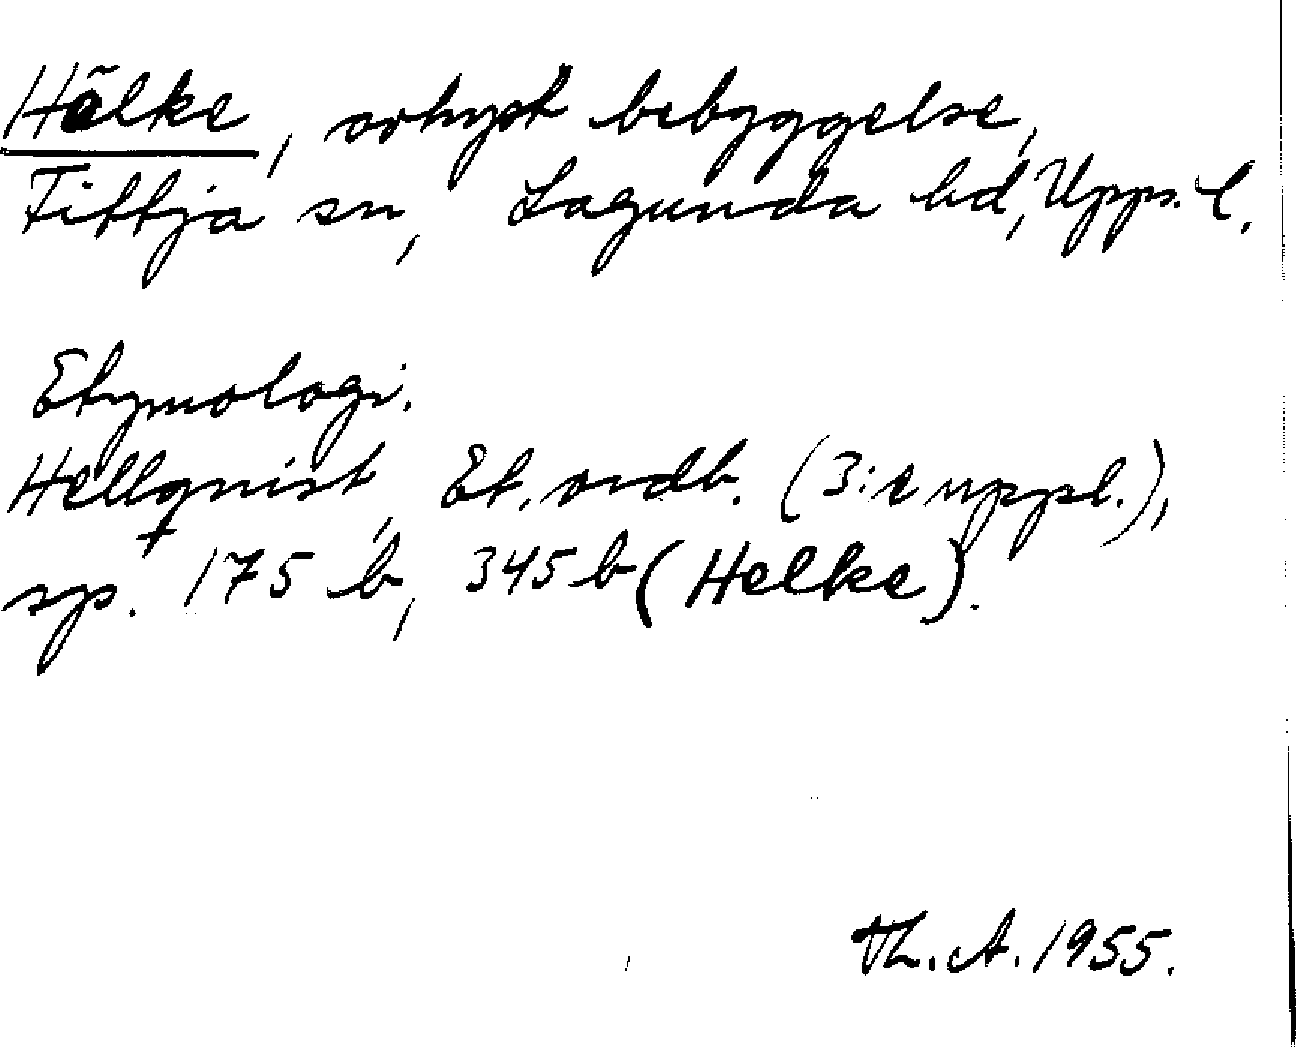 Hälke, avhyst bebyggelse,
Fittja sn, Lagunda hd, Upps. l.
Etymologi.
Hellqvist, Et. ordb. (3:e uppl.),
sp. 175 b, 345 b (Helke).
Th. A. 1955.